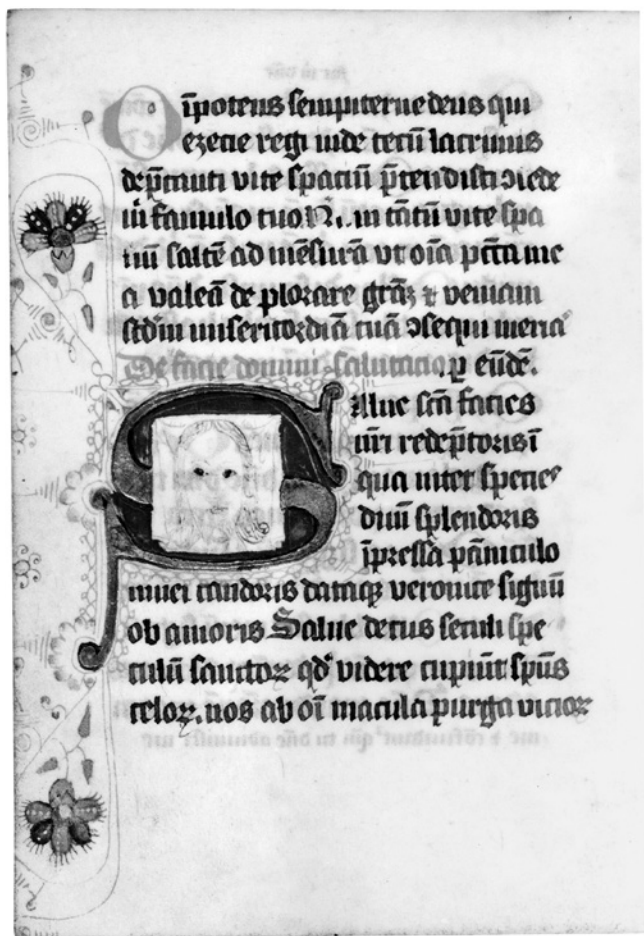 Oīpotens sempiterne deus qui
ezecie regi iude tecū lacrimis
dep̄canti vite spaciū p̄tendisti ɔcede
m̄ famulo tuo N. in tātū vite spa
tiū saltē ad mēsurā vt oīa pctā me
a valeā de plorare grāꝫ ⁊ veniam
scd̄m misericordiā tuā ɔsequi meria
De facie domini salutacio. p eūdē.
Salue scā facies
nr̄i redēptoris ī
qua nitet species
diui splendoris
īpressa pāniculo
niuei candoris dataqꝫ veronice signū
ob amoris Salue decus seculi spe
culū sanctoꝝ qd' videre cupiūt spūs
celoꝝ. nos ab oī macula purga vicioꝝ